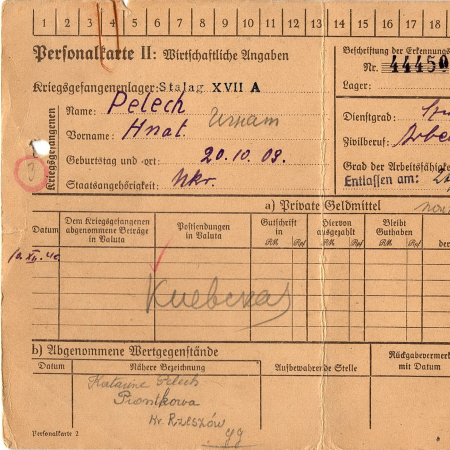 1 2 3 4 5 6 7 8 9 10 11 12 13 14 15 16 17 18
Personalkarte II: Wirtschaftliche Angaben
Beschriftung der Erkennungs
Nr. 44450
Lager:
Kriegsgefangenenlager: Stalag XVII A
Kriegsgefangenen
Name: Pelech
Vorname: Hnat. Игнат
Geburtstag und -ort: 20.10.09.
Staatsangehörigkeit: Ukr.
Dienstgrad:
Zivilberuf: Arbe
Grad der Arbeitsfähigke
Entlassen am:
a) Private Geldmittel
Datum
Dem Kriegsgefangenen abgenommene Beträge in Valuta
Postsendungen in Valuta
Gutschrift in
RM Rpf
Hiervon ausgezahlt
RM Rpf
Bleibt Guthaben
RM Rpf
der
Киевская
b) Abgenommene Wertgegenstände
Datum
Nähere Bezeichnung
Aufbewahrende Stelle
Rückgabevermerk mit Datum
Katarine Pelech
Pronikowa
Kr. Rzeszów
Personalkarte 2